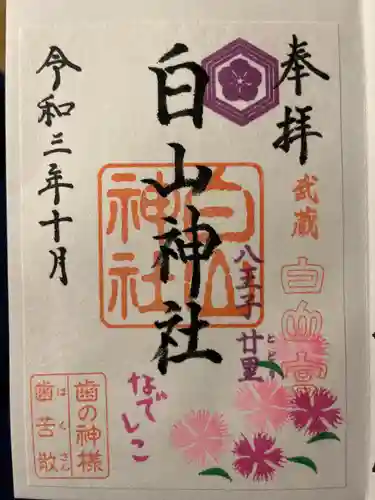 奉拝
武蔵
白山宮
八王子 廿里
とどり
白山神社
白山
神社
令和三年十月
なでしこ
歯の神様
はくさん
歯苦散